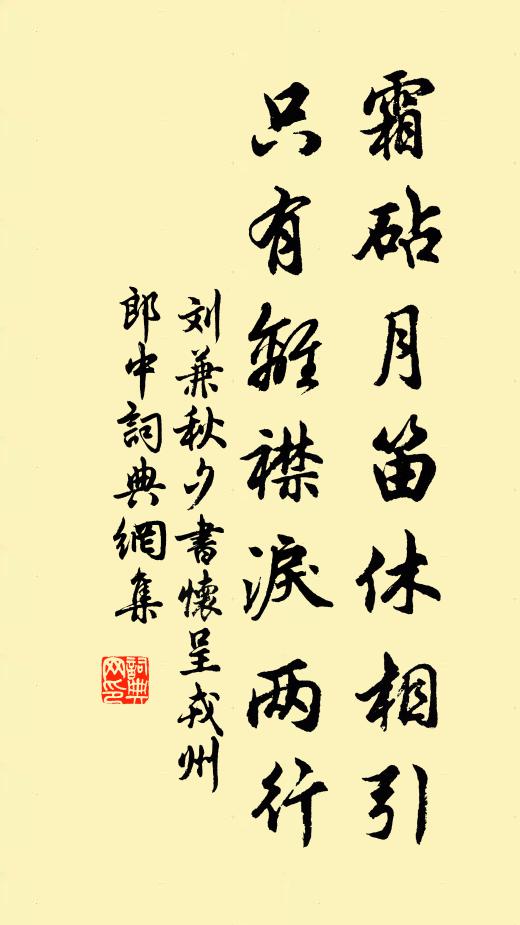 霜砧月笛休相引
只有離襟淚两行
刘兼秋夕書懷呈戎州
郎中詞典網集
詞典网印